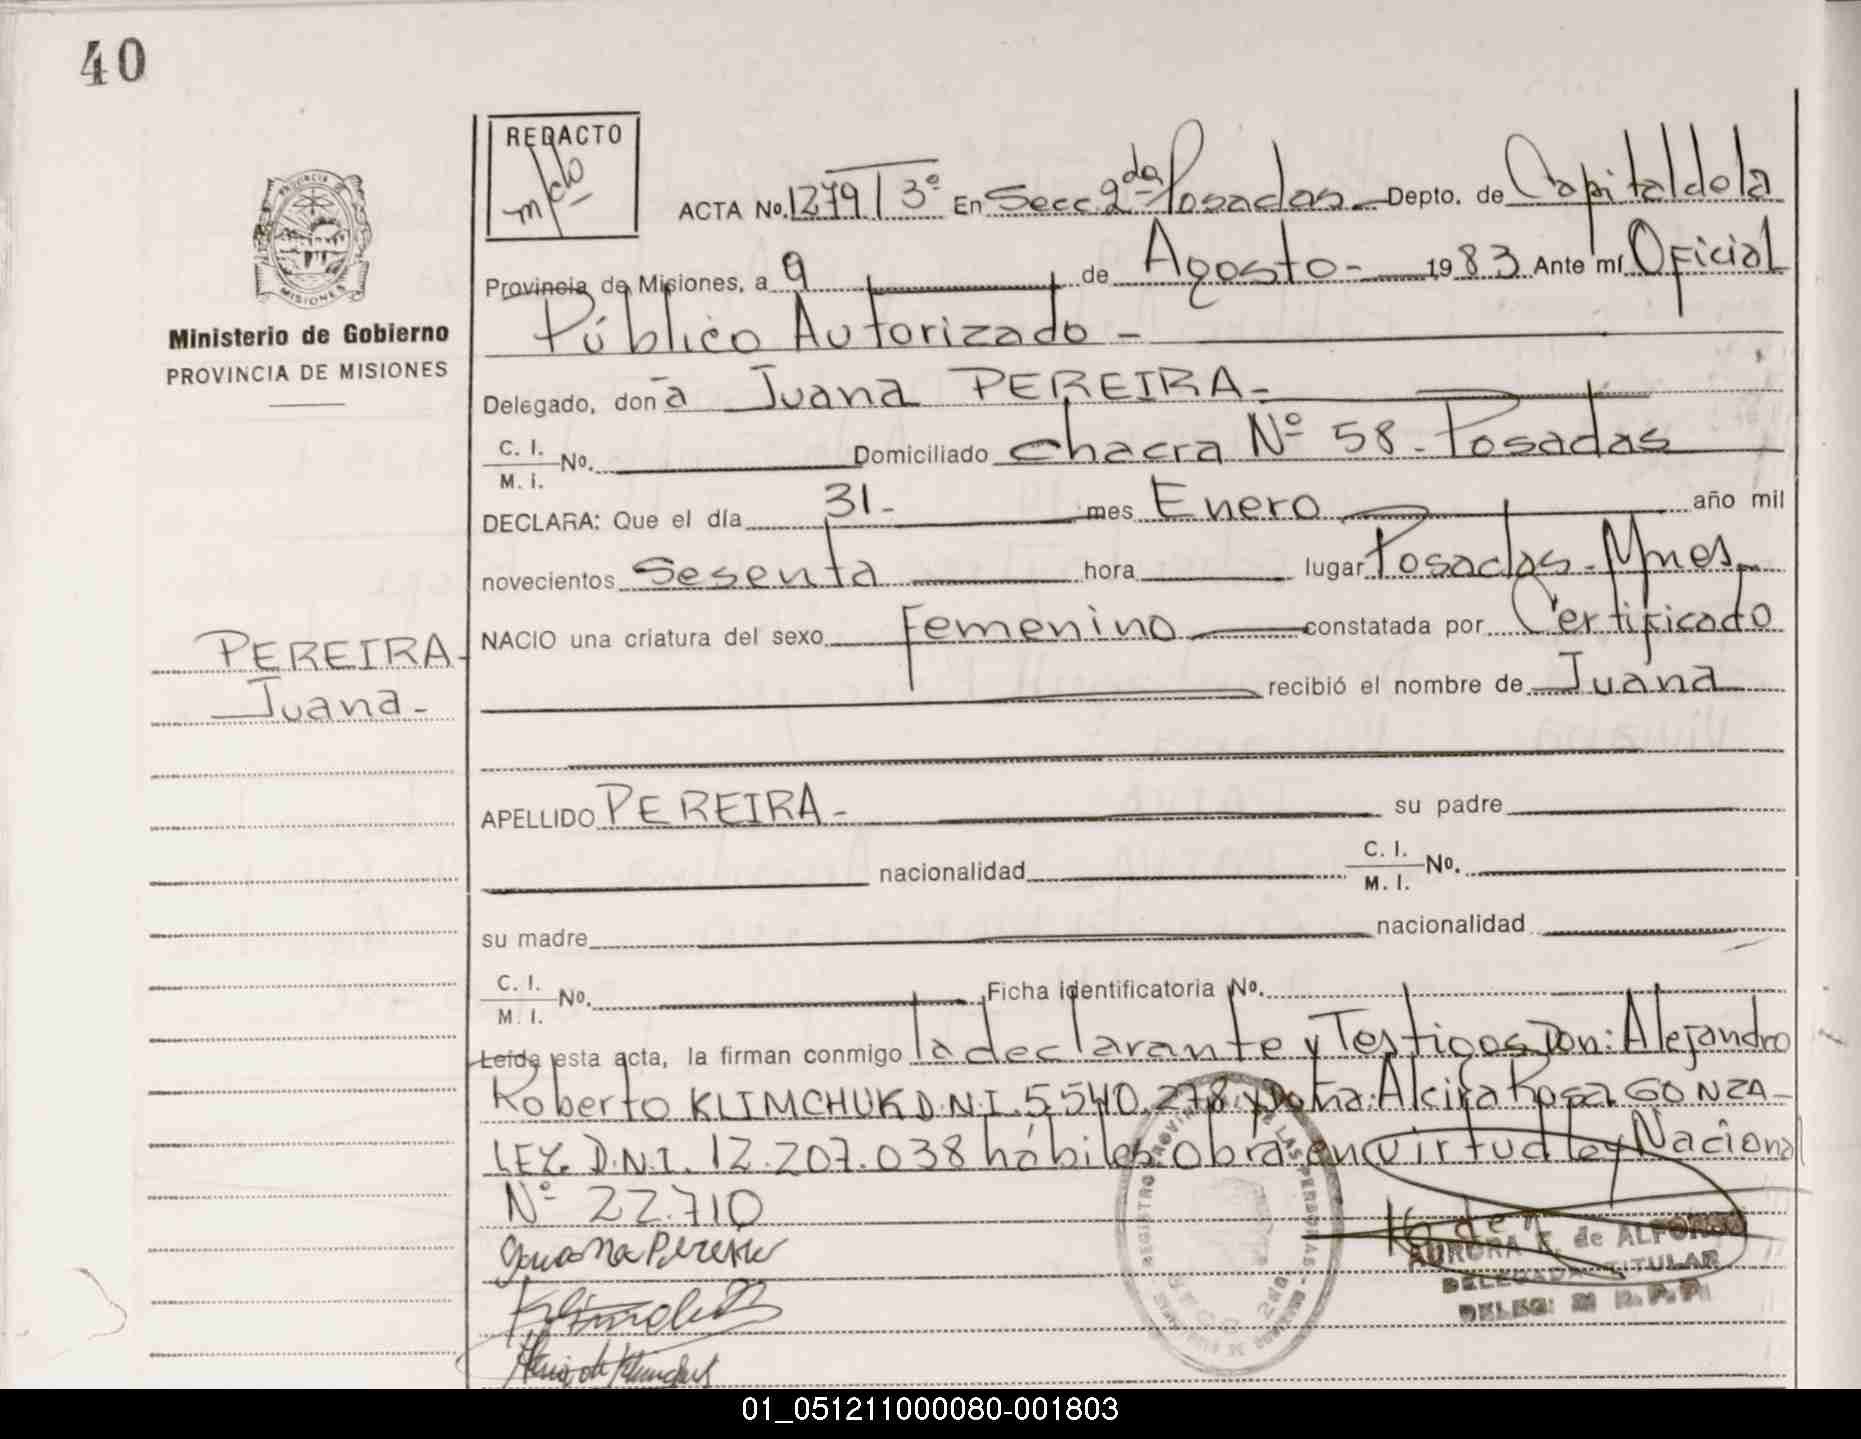 40
REDACTO
ACTA No. 1279 T 3º En Secc. 2da Posadas - Depto. de Capital de la
Provincia de Misiones, a 9 de Agosto - 1983 Ante mí Oficial
Público Autorizado -
PROVINCIA DE
MISIONES
Ministerio de Gobierno
PROVINCIA DE MISIONES
Delegado, don a Juana PEREIRA -
C. I.
M. i. No. Domiciliado chacra Nº 58 - Posadas
DECLARA: Que el día 31 - mes Enero año mil
novecientos Sesenta hora lugar Posadas - Mnes.
NACIO una criatura del sexo Femenino constatada por Certificado
PEREIRA -
Juana -
recibió el nombre de Juana
APELLIDO PEREIRA - su padre
nacionalidad C. I.
M. I. No.
su madre nacionalidad
C. I.
M. I. No. Ficha identificatoria No.
Leída esta acta, la firman conmigo la declarante y Testigos Don: Alejandro
Roberto KLIMCHUK D.N.I. 5.540.278 y Doña: Alcira Rosa GONZA-
LEZ. D.N.I. 12.207.038 hábiles. Obra en virtud Ley Nacional
Nº 22.710
Juana Pereira
AURORA K. de ALFONSO
DELEGADA TITULAR
DELEG. M R. P. P.
01_051211000080-001803